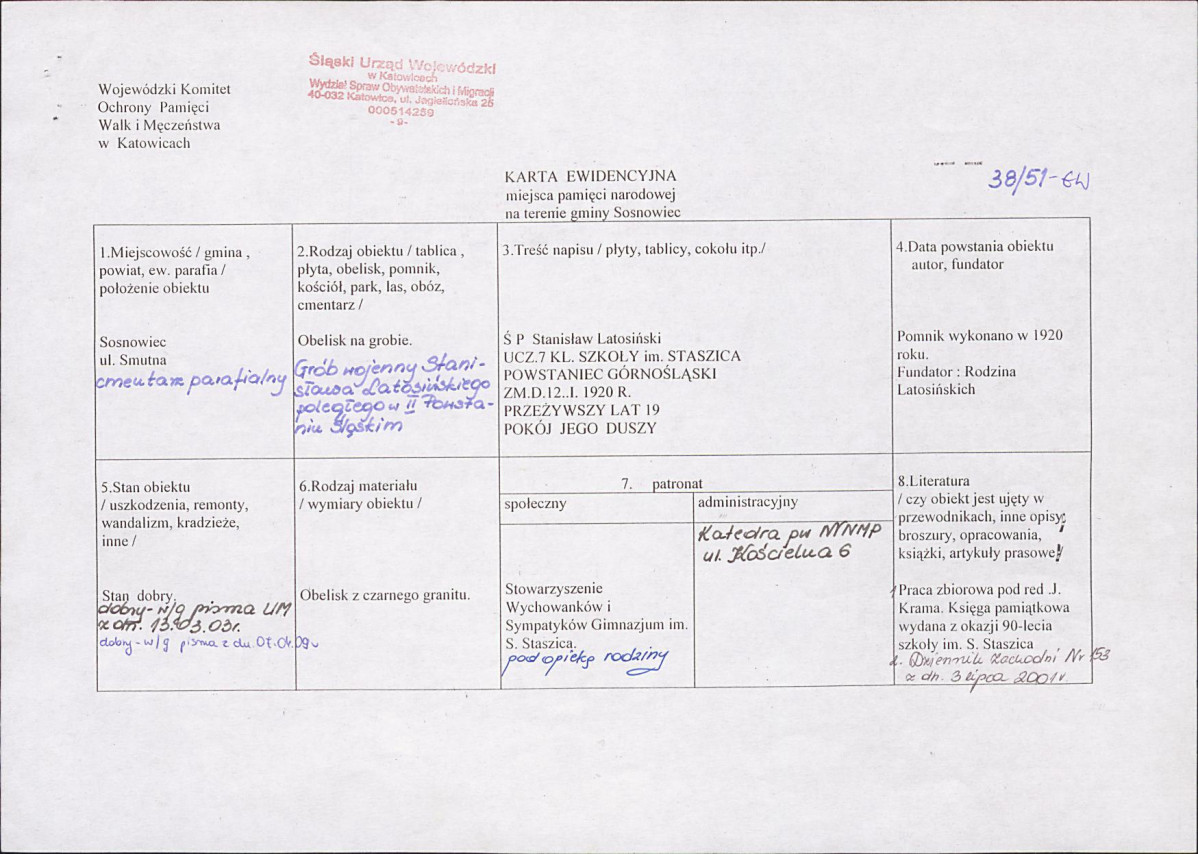 Wojewódzki Komitet
Ochrony Pamięci
Walk i Męczeństwa
w Katowicach
Śląski Urząd Wojewódzki
w Katowicach
Wydział Spraw Obywatelskich i Migracji
40-032 Katowice, ul. Jagiellońska 25
000514259
-9-
38/51-GW
KARTA EWIDENCYJNA
miejsca pamięci narodowej
na terenie gminy Sosnowiec
1.Miejscowość / gmina ,
powiat, ew. parafia /
położenie obiektu
Sosnowiec
ul. Smutna
cmentarz parafialny
2.Rodzaj obiektu / tablica ,
płyta, obelisk, pomnik,
kościół, park, las, obóz,
cmentarz /
Obelisk na grobie.
Grób wojenny Stani-
sława Latosińskiego
poległego w II Powsta-
niu Śląskim
3.Treść napisu / płyty, tablicy, cokołu itp./
Ś P Stanisław Latosiński
UCZ.7 KL. SZKOŁY im. STASZICA
POWSTANIEC GÓRNOŚLĄSKI
ZM.D.12..I. 1920 R.
PRZEŻYWSZY LAT 19
POKÓJ JEGO DUSZY
4.Data powstania obiektu
autor, fundator
Pomnik wykonano w 1920
roku.
Fundator : Rodzina
Latosińskich
5.Stan obiektu
/ uszkodzenia, remonty,
wandalizm, kradzieże,
inne /
Stan dobry.
dobry - w/g pisma UM
z dn. 13.03.03r.
dobry - w/g pisma z dn. 07.04.09r
6.Rodzaj materiału
/ wymiary obiektu /
Obelisk z czarnego granitu.
7. patronat
społeczny
Stowarzyszenie
Wychowanków i
Sympatyków Gimnazjum im.
S. Staszica.
pod opieką rodziny
administracyjny
Katedra pw NNMP
ul. Kościelna 6
8.Literatura
/ czy obiekt jest ujęty w
przewodnikach, inne opisy,
broszury, opracowania,
książki, artykuły prasowe/
1 Praca zbiorowa pod red .J.
Krama. Księga pamiątkowa
wydana z okazji 90-lecia
szkoły im. S. Staszica
2. Dziennik Zachodni Nr 153
z dn. 3 lipca 2001r.